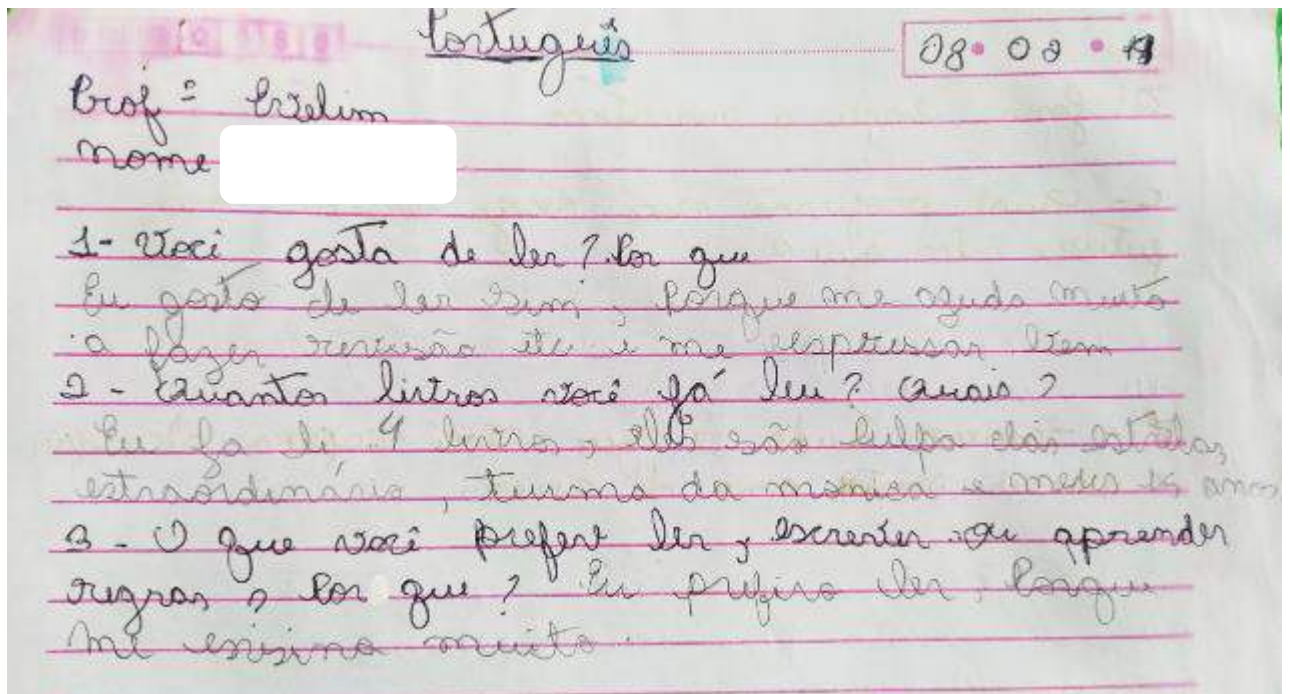 Português
08 08 19
Profª Evelim
Nome
1- Você gosta de ler? Por que
Eu gosto de ler sim, Porque me ajuda muito
a fazer revisão etc e me esspressar bem
2 - Quantos livros você já leu? Quais?
Eu Ja li 4 livros, eles são Culpa das estrelas,
extraordinário, turma da monica e meus 15 anos
3 - O que você prefere ler, escrever ou aprender
regras, Por que? Eu prefiro ler, Porque
me ensina muito.